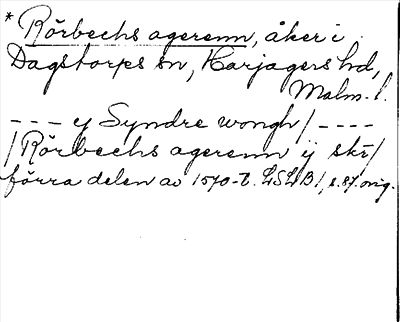 * Rörbechs agerenn, åker i
Dagstorps sn, Harjagers hd,
Malm. l.
--- y Syndre wongh / ----
/ Rörbechs agerenn ij skr /
förra delen av 1570-t. LSLB 1, s. 87. orig.